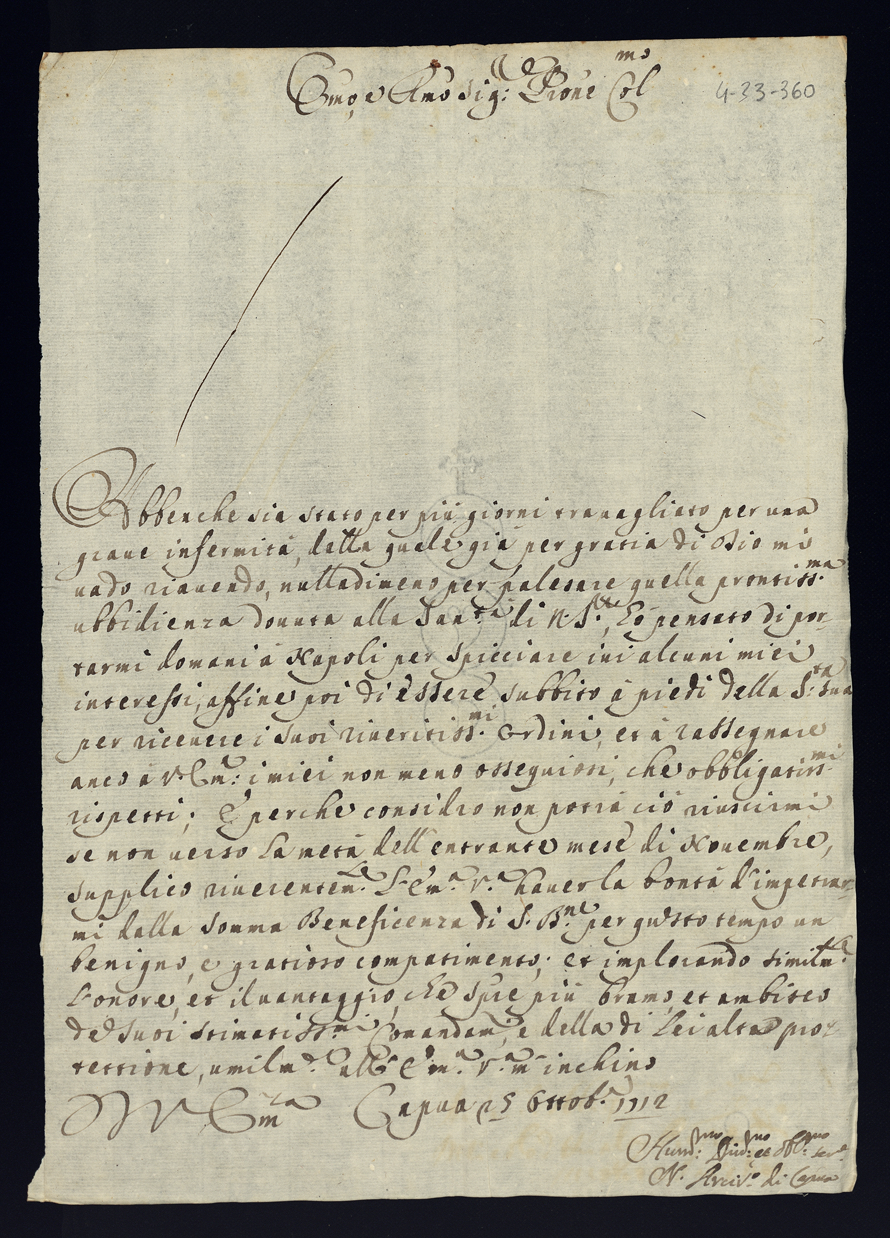 Emo, e Rmo Sig: Prone Col mo
4-33-360
Abbenche sia stato per più giorni travagliato per una
graue infermità, della quale già per gratia di Dio mi
uado riauendo, nulladimeno per palesare quella prontiss:ma
ubbidienza douuta alla San:tà di N. S:re, hò pensato di por-
tarmi domani à Napoli per spicciare iui alcuni miei
interessi, affine poi di essere subbito à piedi della S:tà Sua
per riceuere i suoi riueritiss:mi ordini, et à rassegnare
anco à V. Em:a i miei non meno ossequiosi, che obbligatiss:mi
rispetti; E perche considro non potrà ciò riuscirmi
se non uerso la metà dell'entrante mese di Nouembre,
supplico riuerentem:te l'Em:a V:a hauer la bontà d'impetrar-
mi dalla somma Beneficenza di S. B:ne per questo tempo un
benigno, e gratioso compatimento; et implorando similm:te
l'onore, et il uantaggio, che spre più bramo, et ambisco
de suoi stimatiss:mi Comandam:ti, e della di Lei alta pro-
tettione, umilm:te all'Em:a V:a m'inchino
V. Em:a Capua 25 Ottob:e 1712
Hum:mo Diu:mo et obl:mo ser:e
N. Arciv:o di Capua